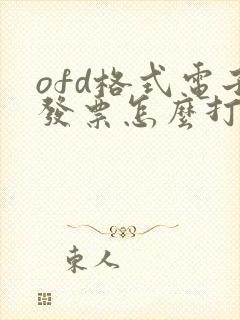 ofd格式電子
發票怎麼打
東人